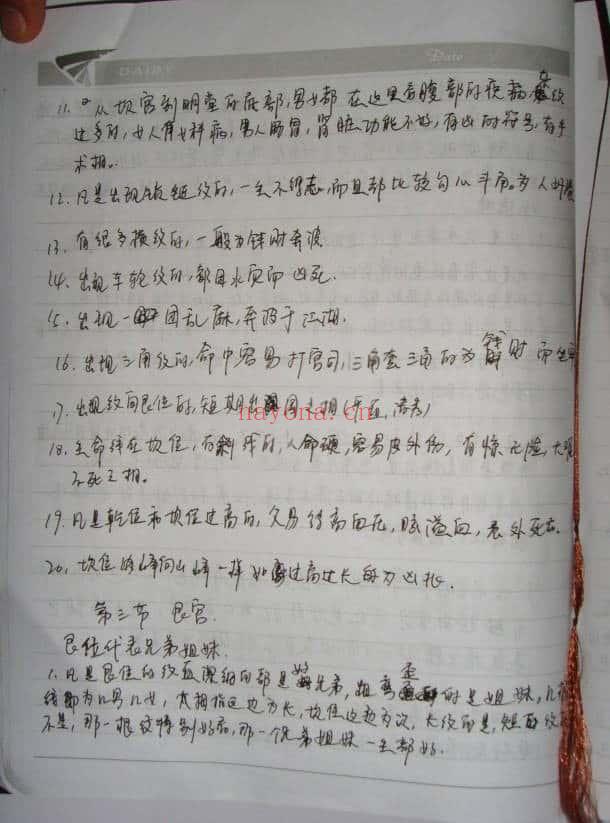 DAIRY
Date
11. 从坎宫到明堂的底部,男女都在这里看腹部的疾病,纹
过多的,女人有女科病,男人肠胃,肾脏功能不好,有凶的符号,有手
术相。
12. 凡是出现锁链纹的,一生不得志,而且都比较勾心斗角,为人
13. 有很多横纹的,一般为钱财奔波
14. 出现车轮纹的,都因水灾而凶死.
15. 出现一团乱麻,奔波于江湖.
16. 出现三角纹的,命中容易打官司,三角套三角的为钱财而坐
17. 出现纹向艮位的,短期出国之相(垂直,清秀)
18. 生命线在坎位,有斜线的,人命硬,容易皮外伤,有惊无险,大难
不死之相。
19. 凡是乾位和坎位过高的,久易得高血压,脑溢血,意外死亡.
20, 坎位的峰向山峰一样如过高过长的为凶兆.
第三节 艮宫
艮位代表兄弟姐妹.
1. 凡是艮位的纹直深细的都是好兄弟,粗弯歪的是姐妹,几根
线即为几男几女,大拇指这边为长,坎位这边为次,长纹的是,短的纹
不是,那一根纹特别好的,那一个兄弟姐妹一生都好.
nayona.cn